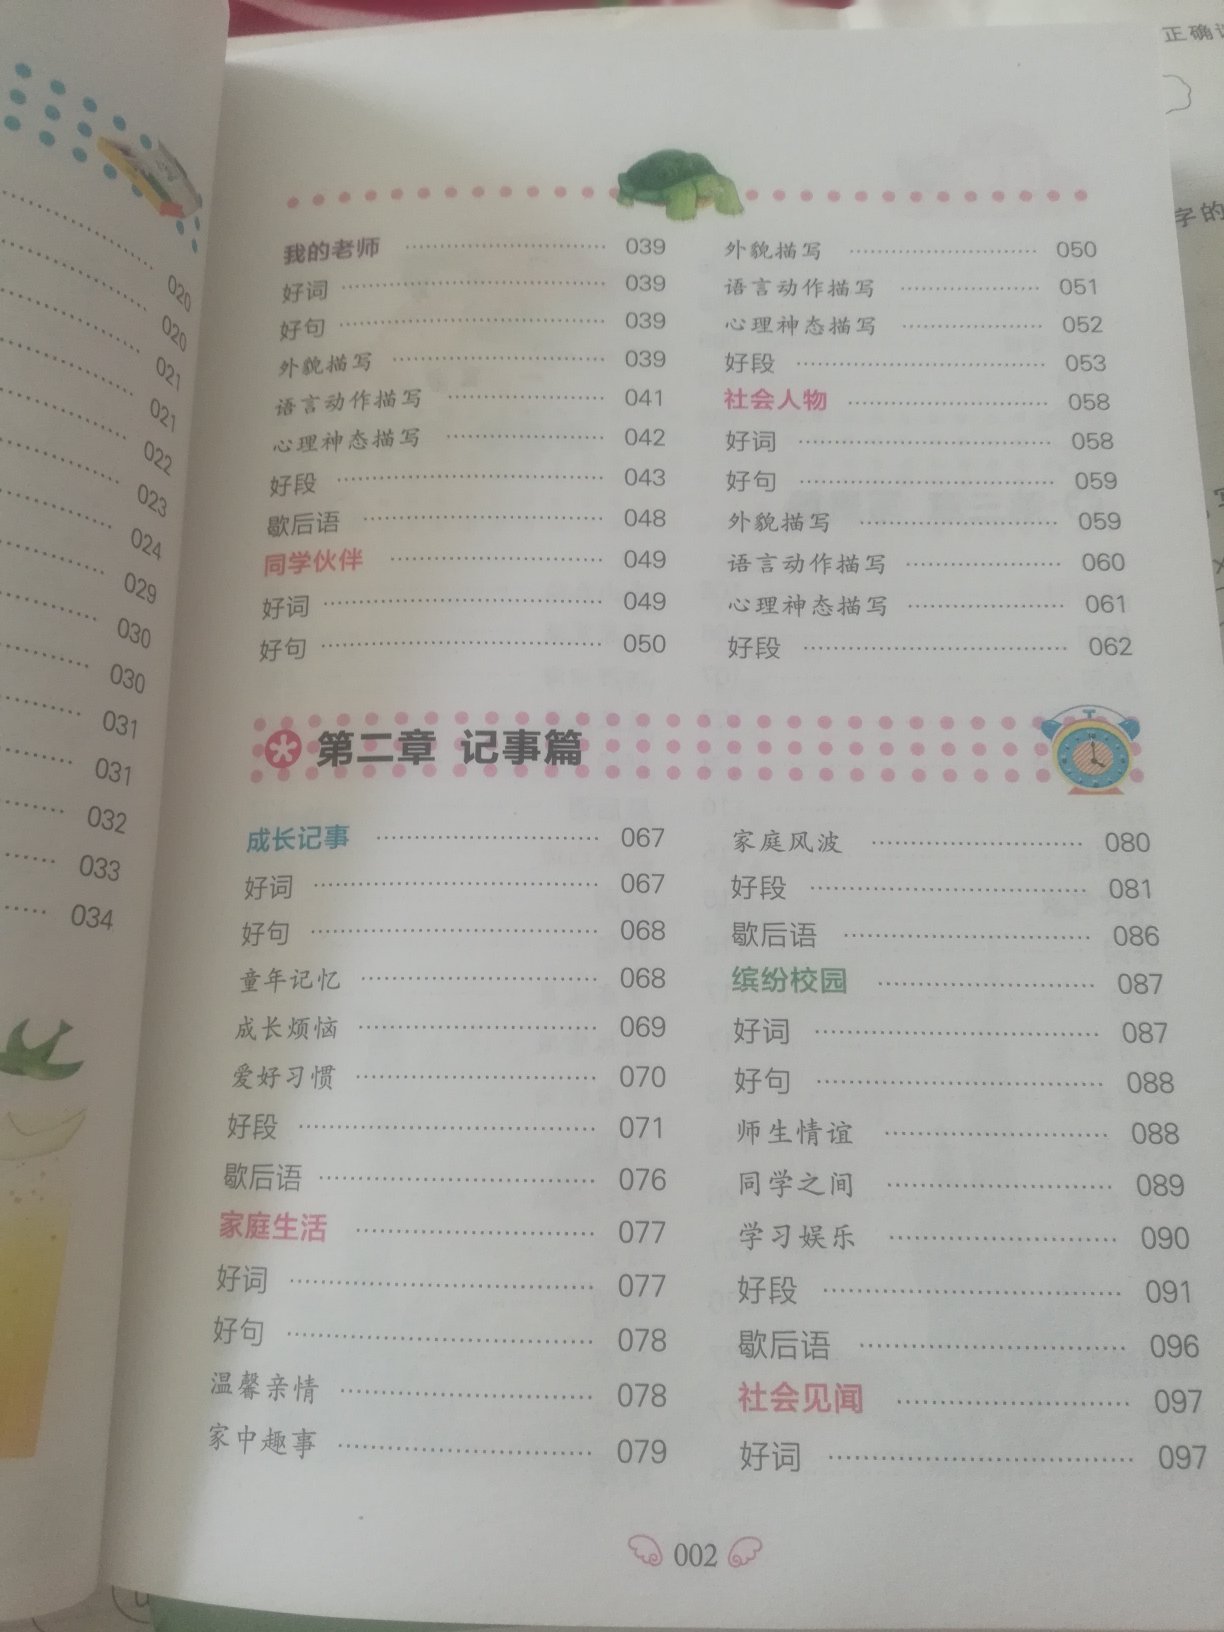 020
020
021
021
022
023
024
029
030
030
031
031
032
033
034
我的老师 039
好词 039
好句 039
外貌描写 039
语言动作描写 041
心理神态描写 042
好段 043
歇后语 048
同学伙伴 049
好词 049
好句 050
外貌描写 050
语言动作描写 051
心理神态描写 052
好段 053
社会人物 058
好词 058
好句 059
外貌描写 059
语言动作描写 060
心理神态描写 061
好段 062
第二章 记事篇
成长记事 067
好词 067
好句 068
童年记忆 068
成长烦恼 069
爱好习惯 070
好段 071
歇后语 076
家庭生活 077
好词 077
好句 078
温馨亲情 078
家中趣事 079
家庭风波 080
好段 081
歇后语 086
缤纷校园 087
好词 087
好句 088
师生情谊 088
同学之间 089
学习娱乐 090
好段 091
歇后语 096
社会见闻 097
好词 097
002
正确
字的